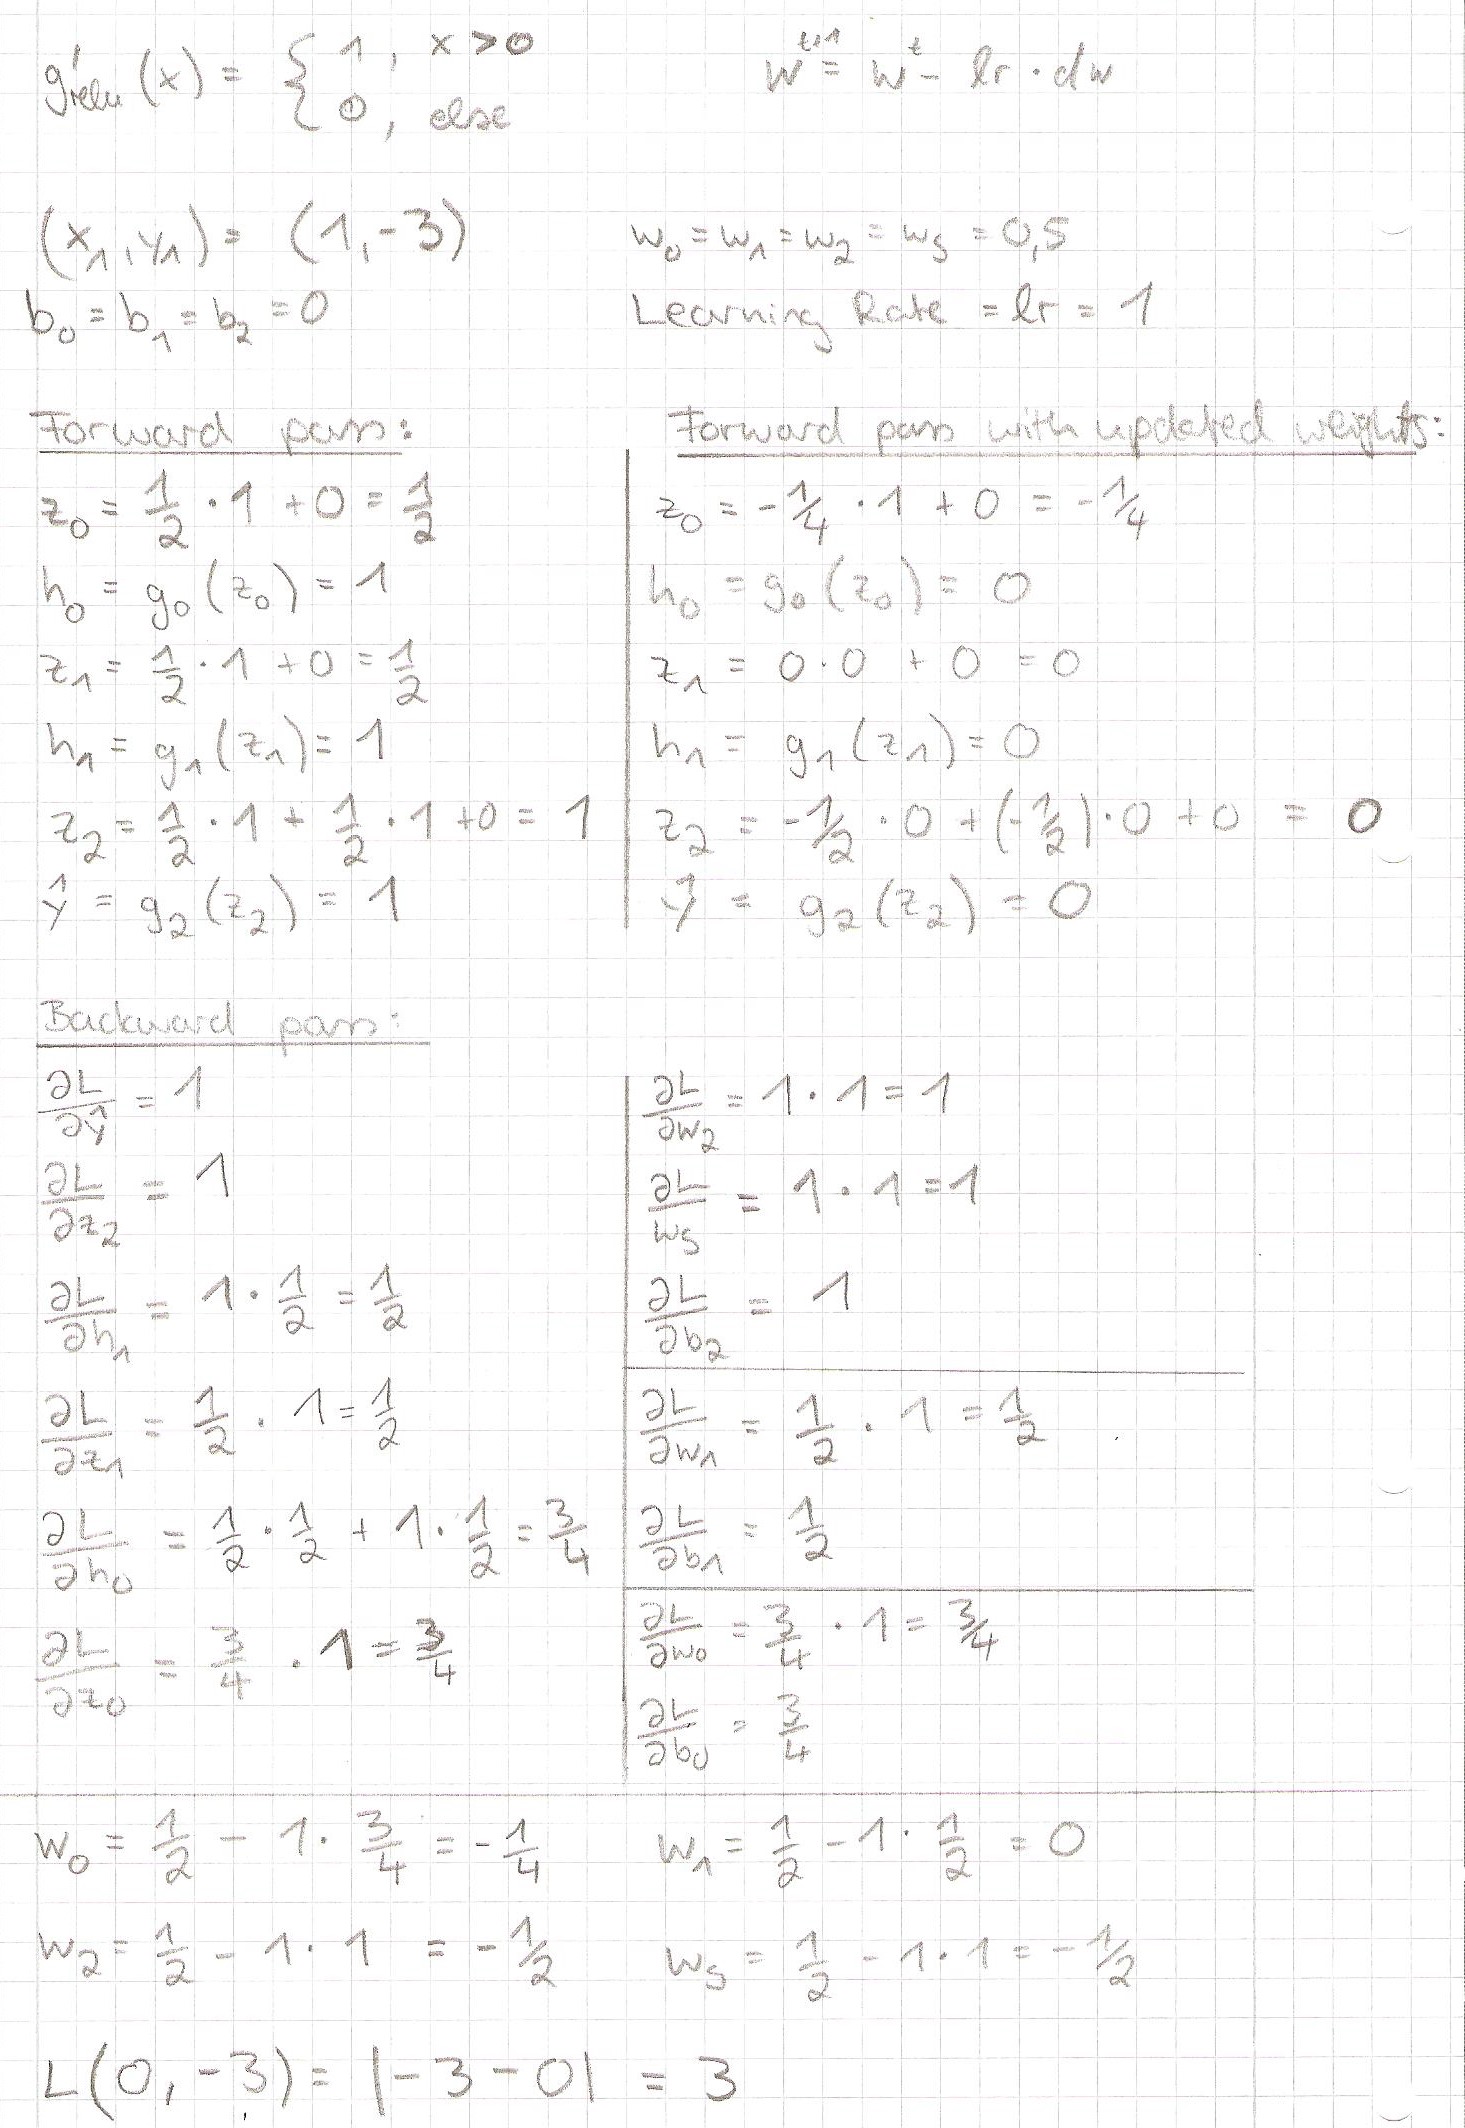 g'relu (x) = { 1, x > 0
0, else
w^{t+1} = w^t - lr · dw
(x₁, y₁) = (1, -3)
w₀ = w₁ = w₂ = w_s = 0,5
b₀ = b₁ = b₂ = 0
Learning Rate = lr = 1
Forward pass:
z₀ = 1/2 · 1 + 0 = 1/2
h₀ = g₀(z₀) = 1
z₁ = 1/2 · 1 + 0 = 1/2
h₁ = g₁(z₁) = 1
z₂ = 1/2 · 1 + 1/2 · 1 + 0 = 1
ŷ = g₂(z₂) = 1
Forward pass with updated weights:
z₀ = -1/4 · 1 + 0 = -1/4
h₀ = g₀(z₀) = 0
z₁ = 0 · 0 + 0 = 0
h₁ = g₁(z₁) = 0
z₂ = -1/2 · 0 + (-1/2) · 0 + 0 = 0
ŷ = g₂(z₂) = 0
Backward pass:
∂L/∂ŷ = 1
∂L/∂z₂ = 1
∂L/∂h₁ = 1 · 1/2 = 1/2
∂L/∂z₁ = 1/2 · 1 = 1/2
∂L/∂h₀ = 1/2 · 1/2 + 1 · 1/2 = 3/4
∂L/∂z₀ = 3/4 · 1 = 3/4
∂L/∂w₂ = 1 · 1 = 1
∂L/w_s = 1 · 1 = 1
∂L/∂b₂ = 1
∂L/∂w₁ = 1/2 · 1 = 1/2
∂L/∂b₁ = 1/2
∂L/∂w₀ = 3/4 · 1 = 3/4
∂L/∂b₀ = 3/4
w₀ = 1/2 - 1 · 3/4 = -1/4
w₁ = 1/2 - 1 · 1/2 = 0
w₂ = 1/2 - 1 · 1 = -1/2
w_s = 1/2 - 1 · 1 = -1/2
L(0, -3) = |-3 - 0| = 3